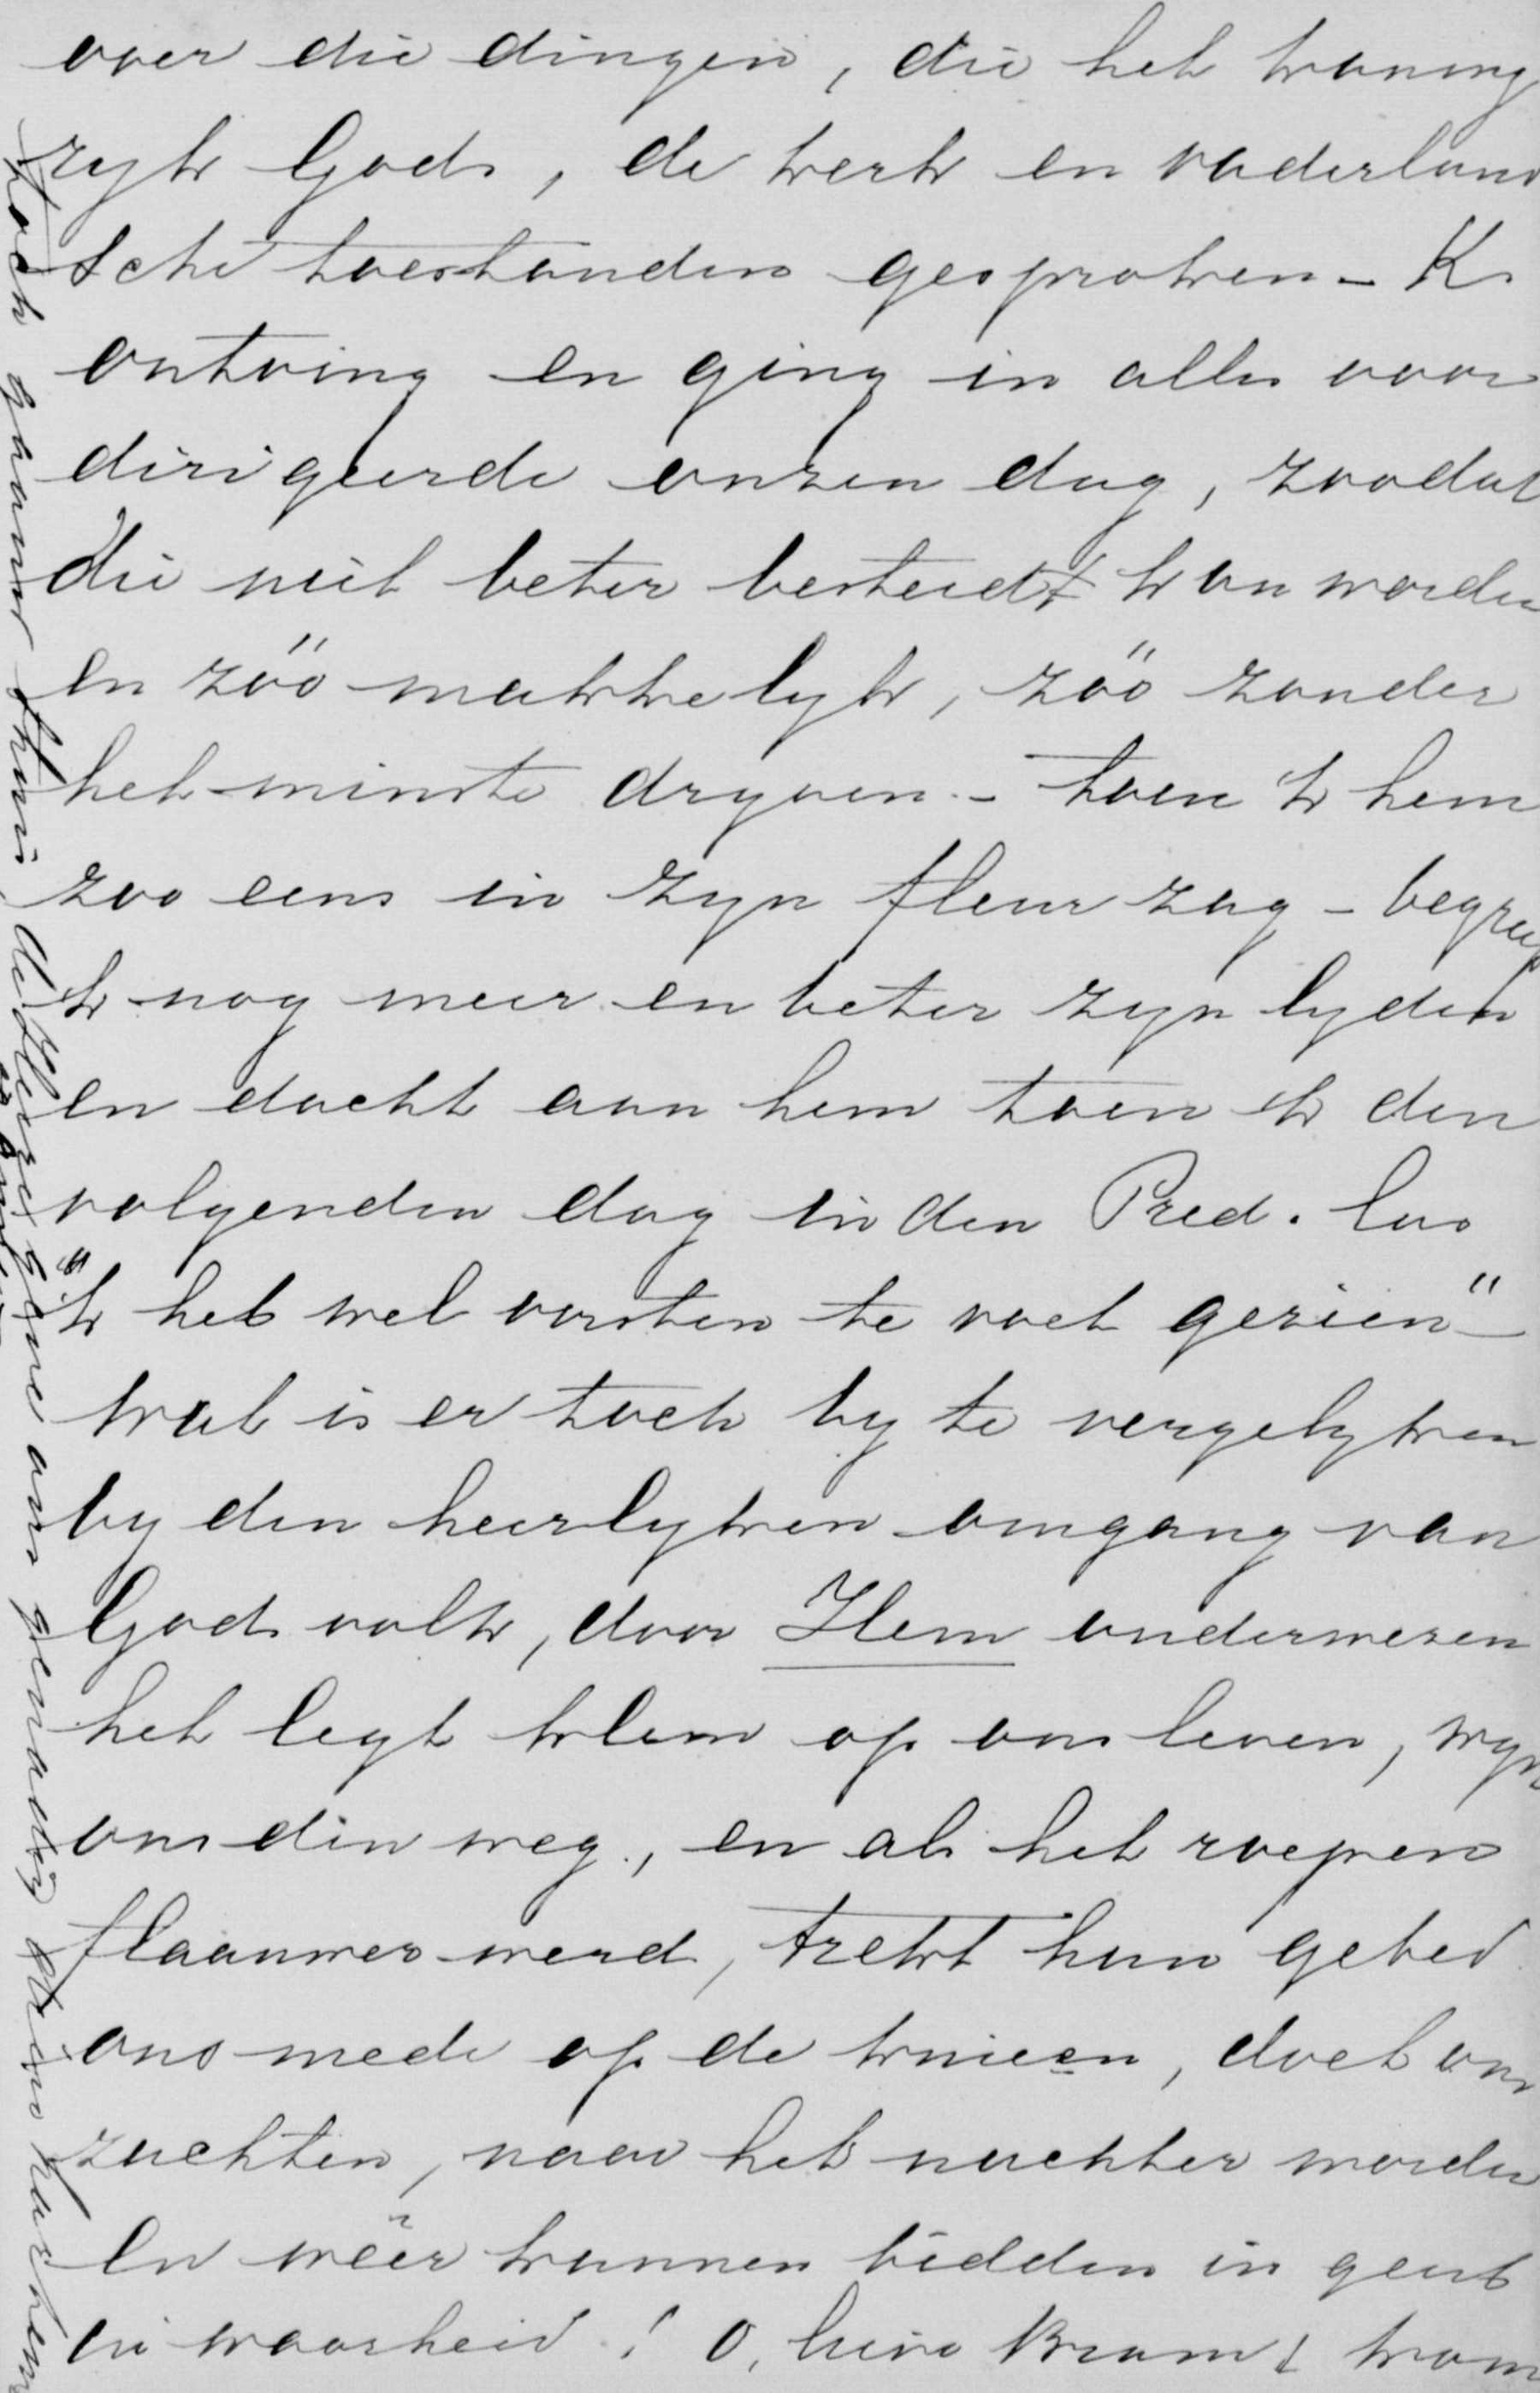 over die dingen, die het koning
ryk Gods, de kerk en vaderland
sche toestanden gesproken – K.
ontving en ging in alles voor
dirigeerde onzen dag, zoodat
die niet beter besteedt kon worden
en zóó makkelyk, zóó zonder
het minste dryven. – toen ik hem
zoo eens in zyn fleur zag – begreep
ik nog meer en beter zyn lyden
en dacht aan hem toen ik den
volgenden dag in den Pred. las
"ik heb wel vorsten te voet gezien" –
wat is er toch by te vergelyken
by den heerlyken omgang van
Gods volk, door Hem onderwezen
het legt klem op ons leven, wyst
ons den weg, en als het roepen
flaauwer werd, trekt hun gebed
ons mede op de knieen, doet ons
zuchten, naar het nuchter worden
en méér kunnen bidden in geest
en waarheid! O, lieve Bram! kom